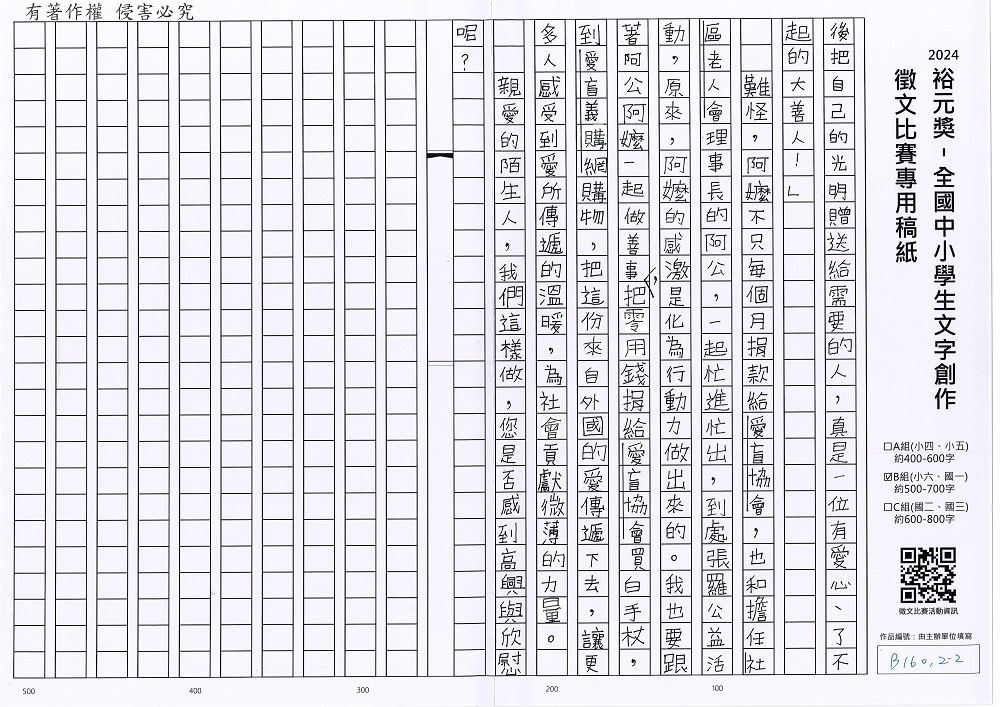 有著作權 侵害必究
2024
裕元獎-全國中小學生文字創作
徵文比賽專用稿紙
□A組(小四、小五)
約400-600字
☑B組(小六、國一)
約500-700字
□C組(國二、國三)
約600-800字
徵文比賽活動資訊
作品編號：由主辦單位填寫
B160,2-2
後把自己的光明贈送給需要的人，真是一位有愛心、了不
起的大善人！」
難怪，阿嬤不只每個月捐款給愛盲協會，也和擔任社
區老人會理事長的阿公，一起忙進忙出，到處張羅公益活
動，原來，阿嬤的感激是化為行動力做出來的。我也要跟
著阿公阿嬤一起做善事，把零用錢捐給愛盲協會買白手杖，
到愛盲義購網購物，把這份來自外國的愛傳遞下去，讓更
多人感受到愛所傳遞的溫暖，為社會貢獻微薄的力量。
親愛的陌生人，我們這樣做，您是否感到高興與欣慰
呢？
500
400
300
200
100